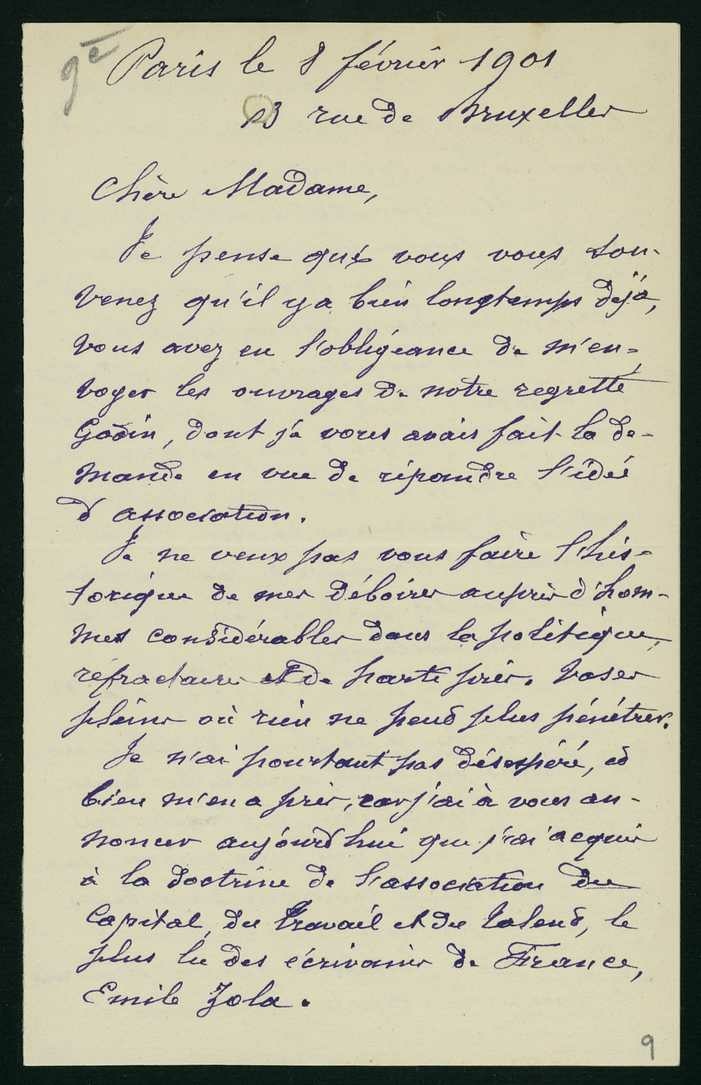 9e
Paris le 8 février 1901
23 rue de Bruxelles
Chère Madame,
Je pense que vous vous sou-
venez qu'il y a bien longtemps déjà,
vous avez eu l'obligeance de m'en-
voyer les ouvrages de notre regretté
Godin, dont je vous avais fait la de-
mande en vue de répandre l'idée
d'association.
Je ne veux pas vous faire l'his-
torique de mes déboires auprès d'hom-
mes considérables dans la politique,
réfractaires et de parti pris. Vases
pleins où rien ne peut plus pénétrer.
Je n'ai pourtant pas désespéré, et
bien m'en a pris, car j'ai à vous an-
noncer aujourd'hui que j'ai acquis
à la doctrine de l'association du
Capital, du Travail et du Talent, le
plus lu des écrivains de France,
Emile Zola.
9